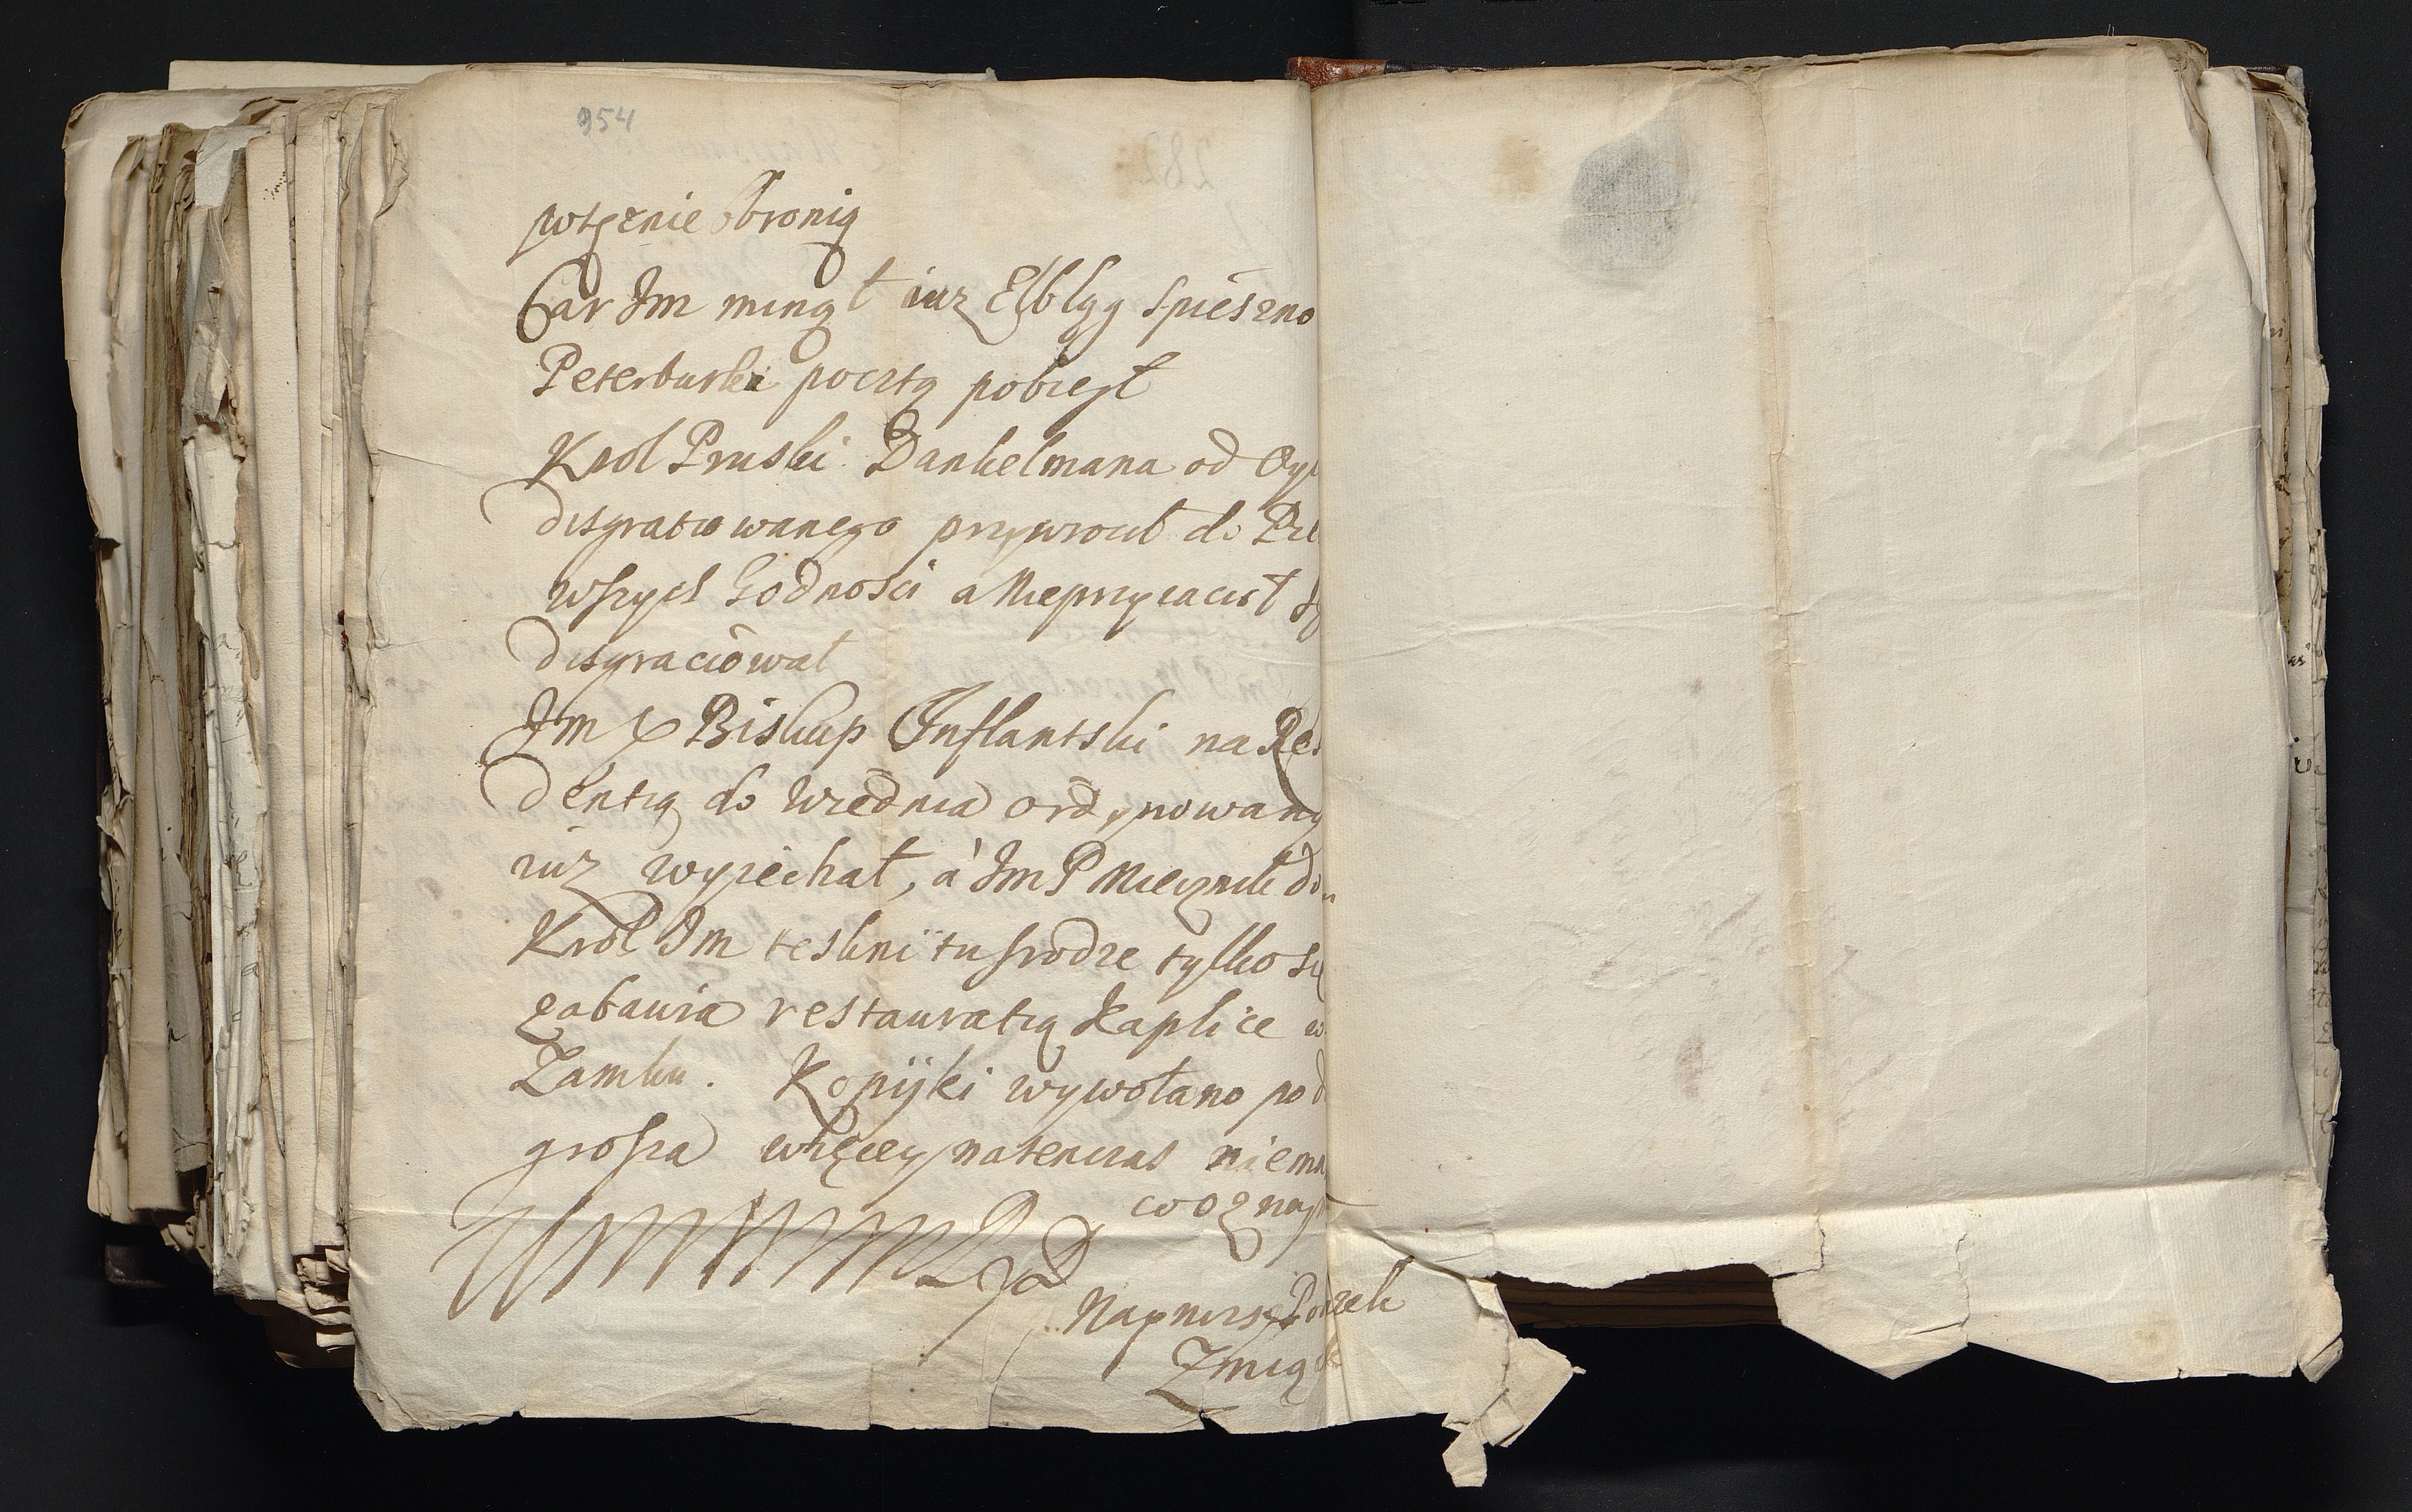 954
potęznie obronią
Car Im minął iuz Elbląg spieszno
Peterburka pocztą pobiegł
Krol Pruski Dankelmana od Oy
disgratiowanego przywrocił do Pie
wszych Godnosci a Nieprzyiacioł
disgraciował
Im X Biskup Inflantski na Re
dentią do Wiednia ordynowany
iuz wyiechał, à Im P Miecznik do
Krol Im teskni tu srodze tylko się
zabawia restauratią Kaplice w
Zamku. Kopijki wywołano pod
grosza więcey natenczas niema
co oznay
Napierse